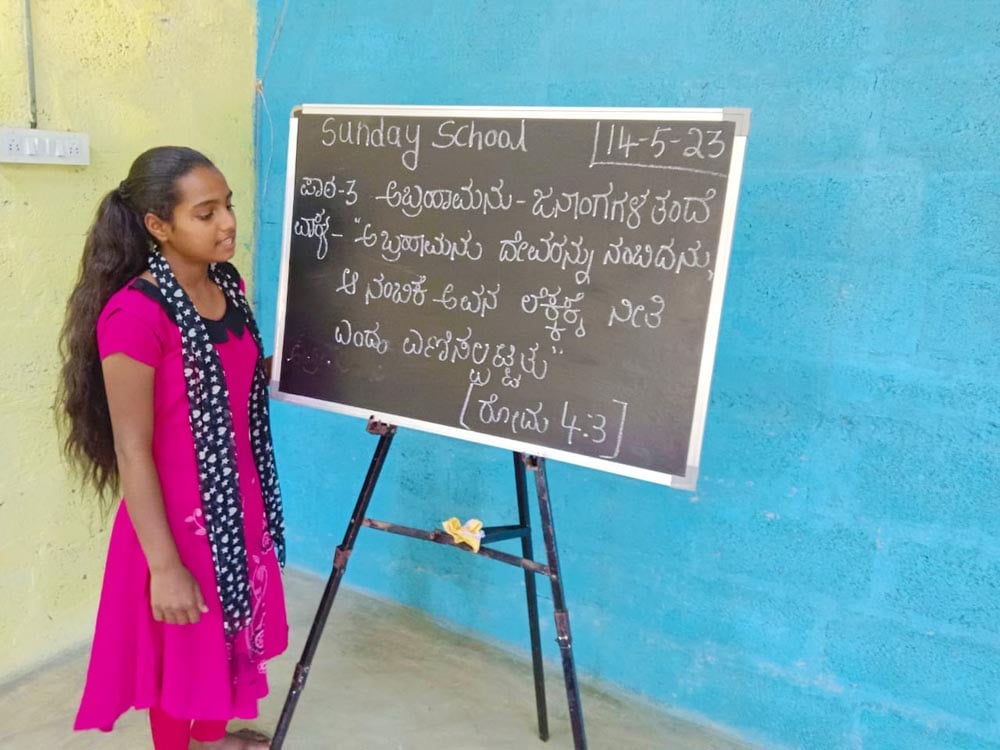 Sunday School 14-5-23
ಪಾಠ-3 ಅಬ್ರಹಾಮನು - ಜನಾಂಗಗಳ ತಂದೆ
ವಾಕ್ಯ - "ಅಬ್ರಹಾಮನು ದೇವರನ್ನು ನಂಬಿದನು,
ಆ ನಂಬಿಕೆ ಅವನ ಲೆಕ್ಕಕ್ಕೆ ನೀತಿ
ಎಂದು ಎಣಿಸಲ್ಪಟ್ಟಿತು"
[ರೋಮ 4:3]